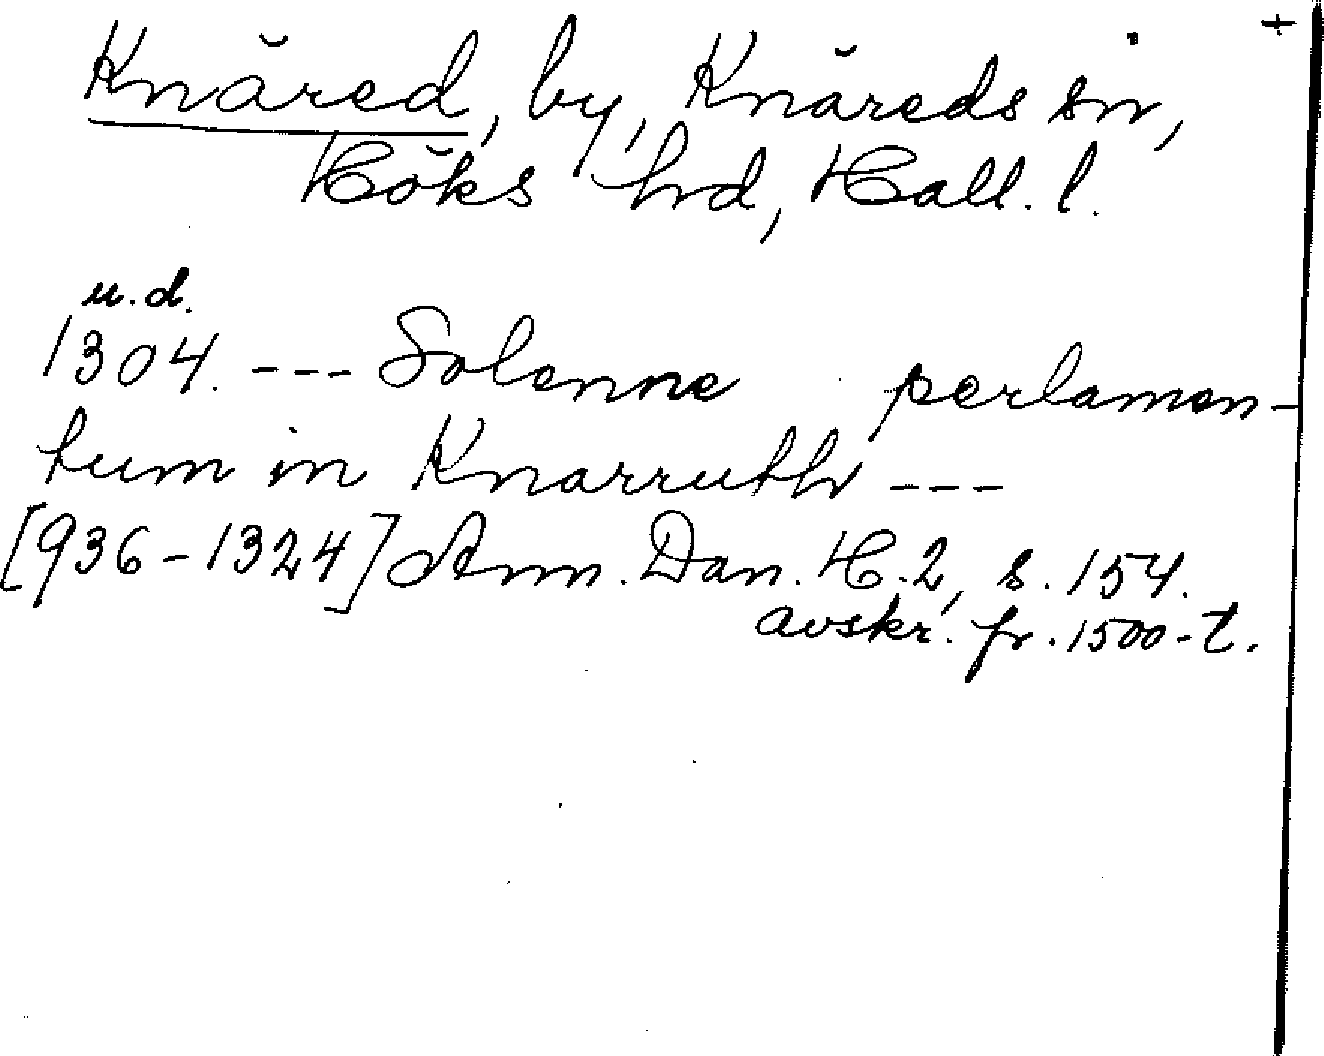 +
Knäred, by, Knäreds sn,
Höks hd, Hall. l.
u.d.
1304. --- Solenne perlamen-
tum in Knarruth ---
[936-1324] Ann. Dan. H. 2, s. 154.
avskr. fr. 1500-t.